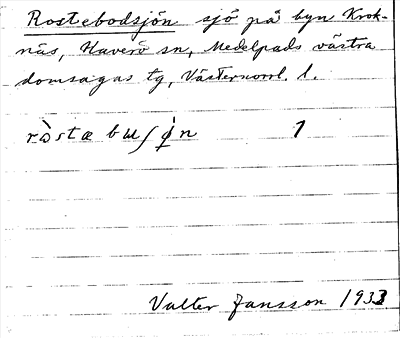 Rostebodsjön sjö på byn Krok-
näs, Haverö sn, Medelpads västra
domsagas tg, Västernorrl. l.
1
Valter Jansson 1933